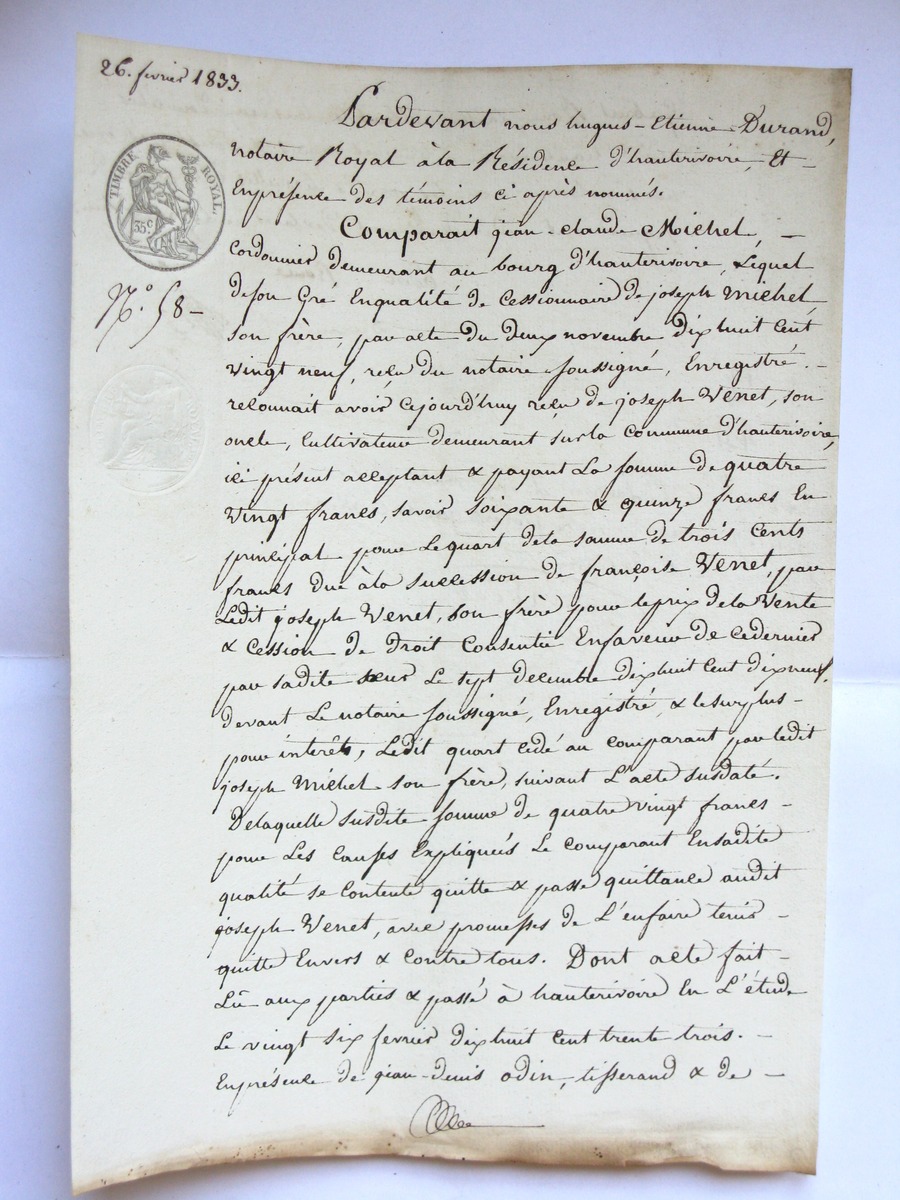 26. fevrier 1833.
Pardevant nous hugues-Etienne Durand,
notaire Royal à la Résidence d'hauterivoire, Et
Enprésence des témoins ci après nommés.
TIMBRE ROYAL.
35 c.
Comparait jean-claude Michel, -
Cordonnier demeurant au bourg d'hauterivoire, Lequel
deson Gré Enqualité de Cessionnaire de joseph Michel
son frère, par acte du deux novembre dix huit Cent
N.º 58 -
vingt neuf, reçu du notaire soussigné, Enregistré. -
reconnait avoir cejourd'huy reçu de joseph Venet, son
oncle, Cultivateur demeurant sur la Commune d'hauterivoire,
ici présent acceptant & payant La somme de quatre
vingt francs, savoir soixante & quinze francs En
principal pour Lequart dela somme de trois Cents
francs due àla succession de françoise Venet, par
Ledit joseph Venet, son frère pour leprix dela Vente
& Cession de Droit Consentie Enfaveur de cedernier
par sadite sœur Le sept decembre dixhuit Cent dixneuf.
devant Le notaire soussigné, Enregistré, & lesurplus -
pour intérêts, Ledit quart cédé au comparant par ledit
joseph Michel son frère, suivant L'acte susdaté.
Delaquelle susdite somme de quatre vingt francs -
pour Les Causes Expliqueés Le comparant Ensadite
qualité se Contente quitte & passe quittance audit
joseph Venet, avec promesses de L'enfaire tenir -
quitte Envers & Contre tous. Dont acte fait -
Lû aux parties & passé à hauterivoire En L'étude
Le vingt six fevrier dixhuit Cent trente trois. -
Enprésence de jean-denis odin, tisserand & de -